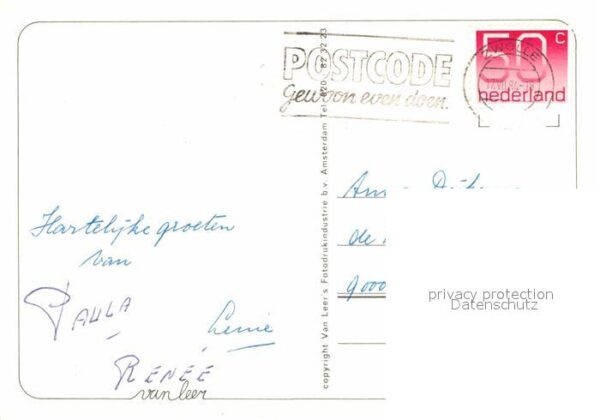 POSTCODE
Gewoon even doen.
ZWOLLE
50 c
nederland
Hartelijke groeten
van
PAULA
Lenie
RENÉE
van leer
copyright Van Leer's Fotodrukindustrie b.v. Amsterdam Tel. 020 - 82 32 23
de
9000
privacy protection
Datenschutz